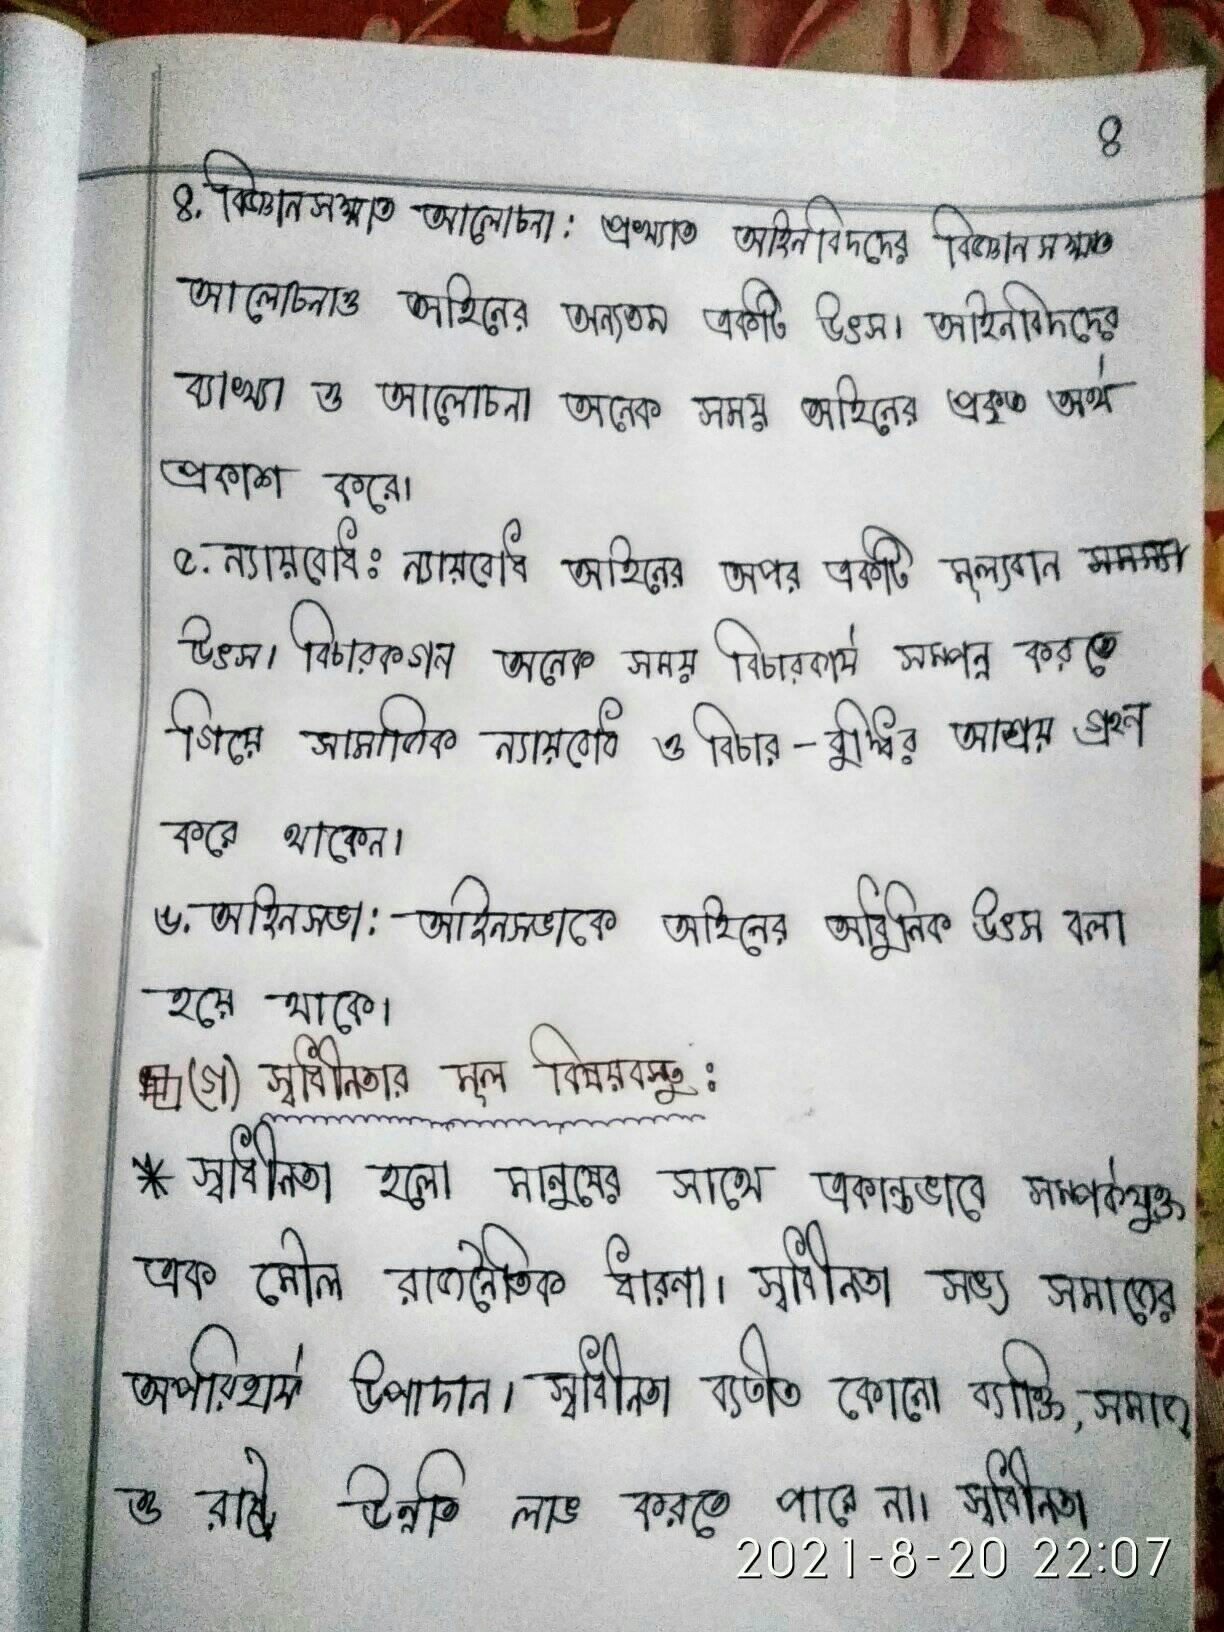 ৪
৪. বিজ্ঞানসম্মত আলোচনা: প্রখ্যাত আইনবিদদের বিজ্ঞানসম্মত
আলোচনাও আইনের অন্যতম একটি উৎস। আইনবিদদের
ব্যাখ্যা ও আলোচনা অনেক সময় আইনের প্রকৃত অর্থ
প্রকাশ করে।
৫. ন্যায়বোধ: ন্যায়বোধ আইনের অপর একটি মূল্যবান
উৎস। বিচারকগন অনেক সময় বিচারকার্য সম্পন্ন করতে
গিয়ে সামাজিক ন্যায়বোধ ও বিচার-বুদ্ধির আশ্রয় গ্রহণ
করে থাকেন।
৬. আইনসভা: আইনসভাকে আইনের আধুনিক উৎস বলা
হয়ে থাকে।
(গ) স্বাধীনতার মূল বিষয়বস্তু:
* স্বাধীনতা হলো মানুষের সাথে একান্তভাবে সম্পর্কযুক্ত
এক মৌল রাজনৈতিক ধারনা। স্বাধীনতা সভ্য সমাজের
অপরিহার্য উপাদান। স্বাধীনতা ব্যতীত কোনো ব্যাক্তি, সমাজ
ও রাষ্ট্র উন্নতি লাভ করতে পারে না। স্বাধীনতা
2021-8-20 22:07